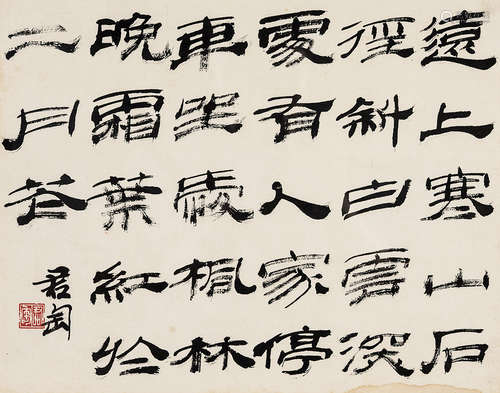 遠上寒山石
徑斜白雲深
處有人家停
車坐愛楓林
晚霜葉紅於
二月花
君匋